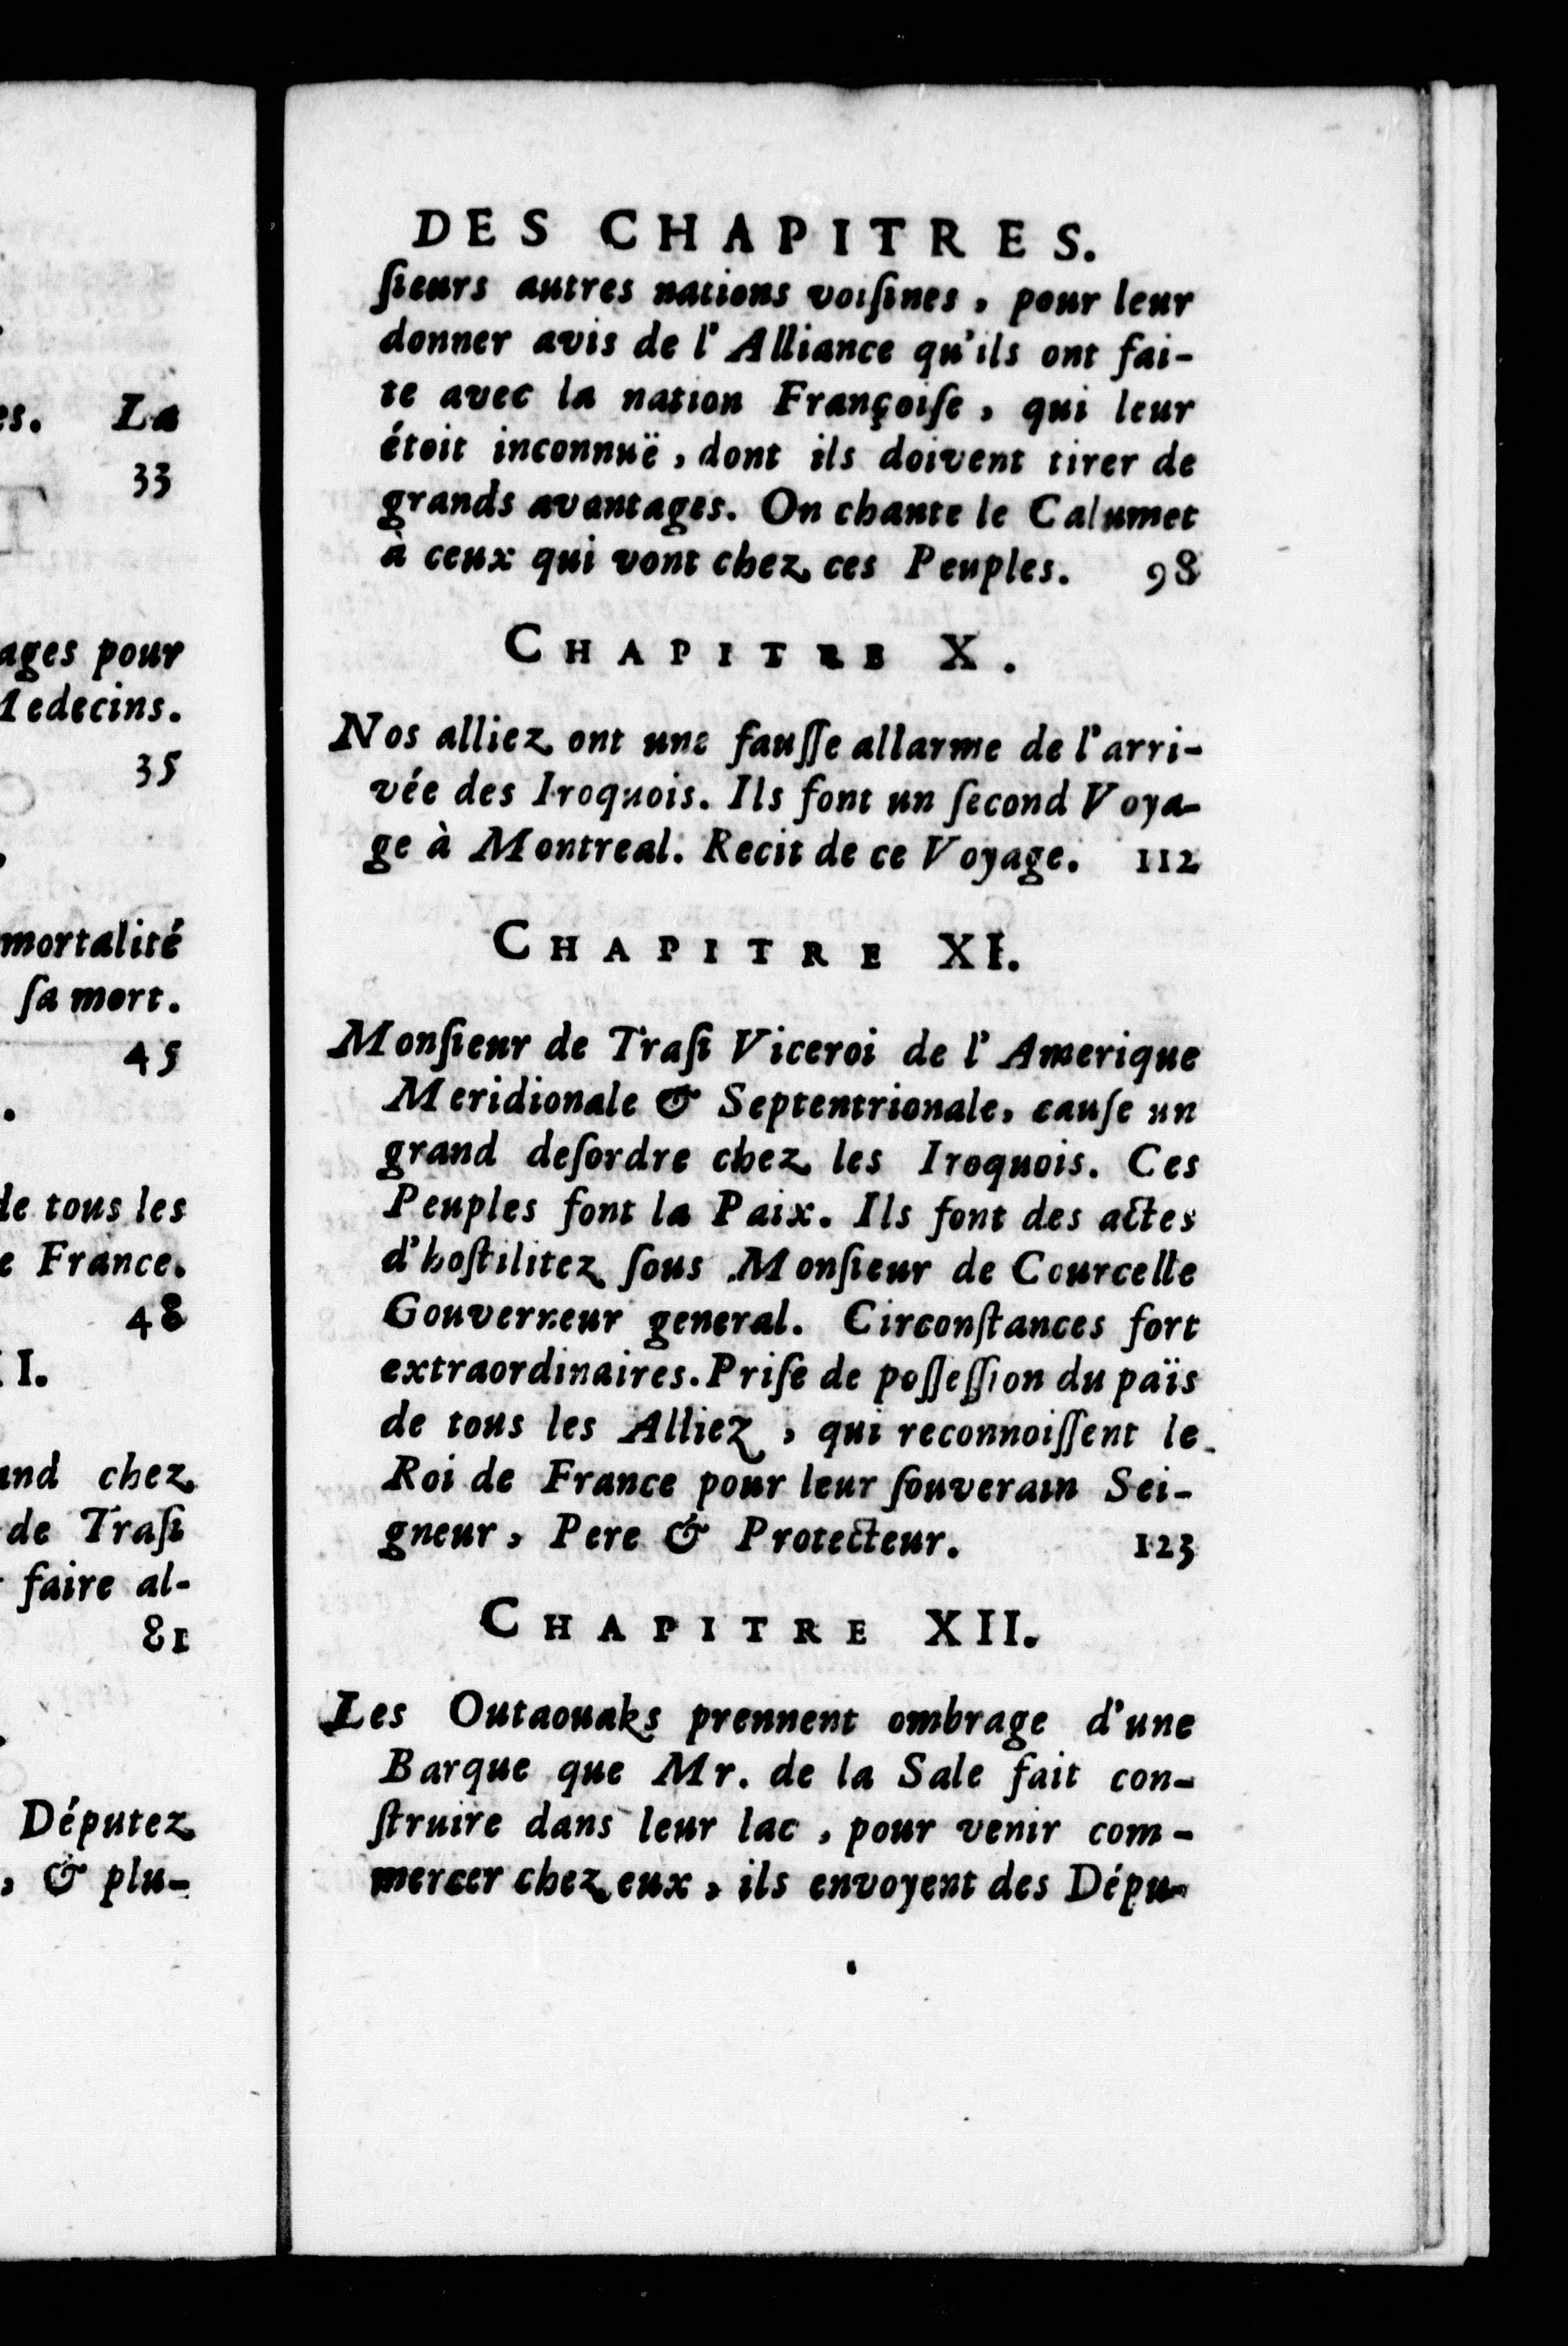 es. La
33
ages pour
Medecins.
35
mortalité
ſa mort.
45
de tous les
e France.
48
II.
and chez
de Traſi
faire al-
81
Députez
, & plu-
DES CHAPITRES.
ſieurs autres nations voiſines, pour leur
donner avis de l'Alliance qu'ils ont fai-
te avec la nation Françoiſe, qui leur
étoit inconnuë, dont ils doivent tirer de
grands avantages. On chante le Calumet
à ceux qui vont chez ces Peuples. 98
CHAPITRE X.
Nos alliez ont une fauſſe allarme de l'arri-
vée des Iroquois. Ils font un ſecond Voya-
ge à Montreal. Recit de ce Voyage. 112
CHAPITRE XI.
Monſieur de Traſi Viceroi de l'Amerique
Meridionale & Septentrionale, cauſe un
grand deſordre chez les Iroquois. Ces
Peuples font la Paix. Ils font des actes
d'hoſtilitez ſous Monſieur de Courcelle
Gouverneur general. Circonſtances fort
extraordinaires. Priſe de poſſeſſion du païs
de tous les Alliez, qui reconnoiſſent le
Roi de France pour leur ſouverain Sei-
gneur, Pere & Protecteur. 123
CHAPITRE XII.
Les Outaouaks prennent ombrage d'une
Barque que Mr. de la Sale fait con-
ſtruire dans leur lac, pour venir com-
mercer chez eux, ils envoyent des Dépu-